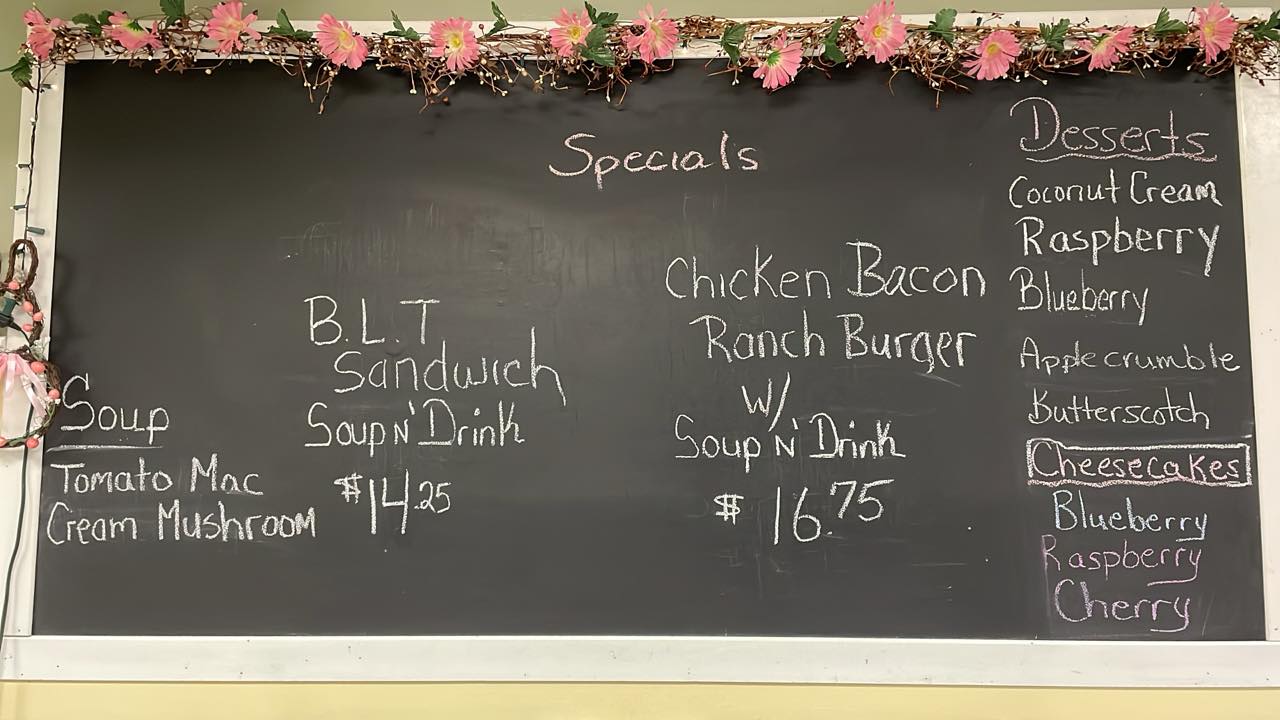 Specials
Soup
Tomato Mac
Cream Mushroom
B.L.T
Sandwich
Soup N' Drink
$14.25
Chicken Bacon
Ranch Burger
w/
Soup N' Drink
$16.75
Desserts
Coconut Cream
Raspberry
Blueberry
Apple crumble
Butterscotch
Cheesecakes
Blueberry
Raspberry
Cherry